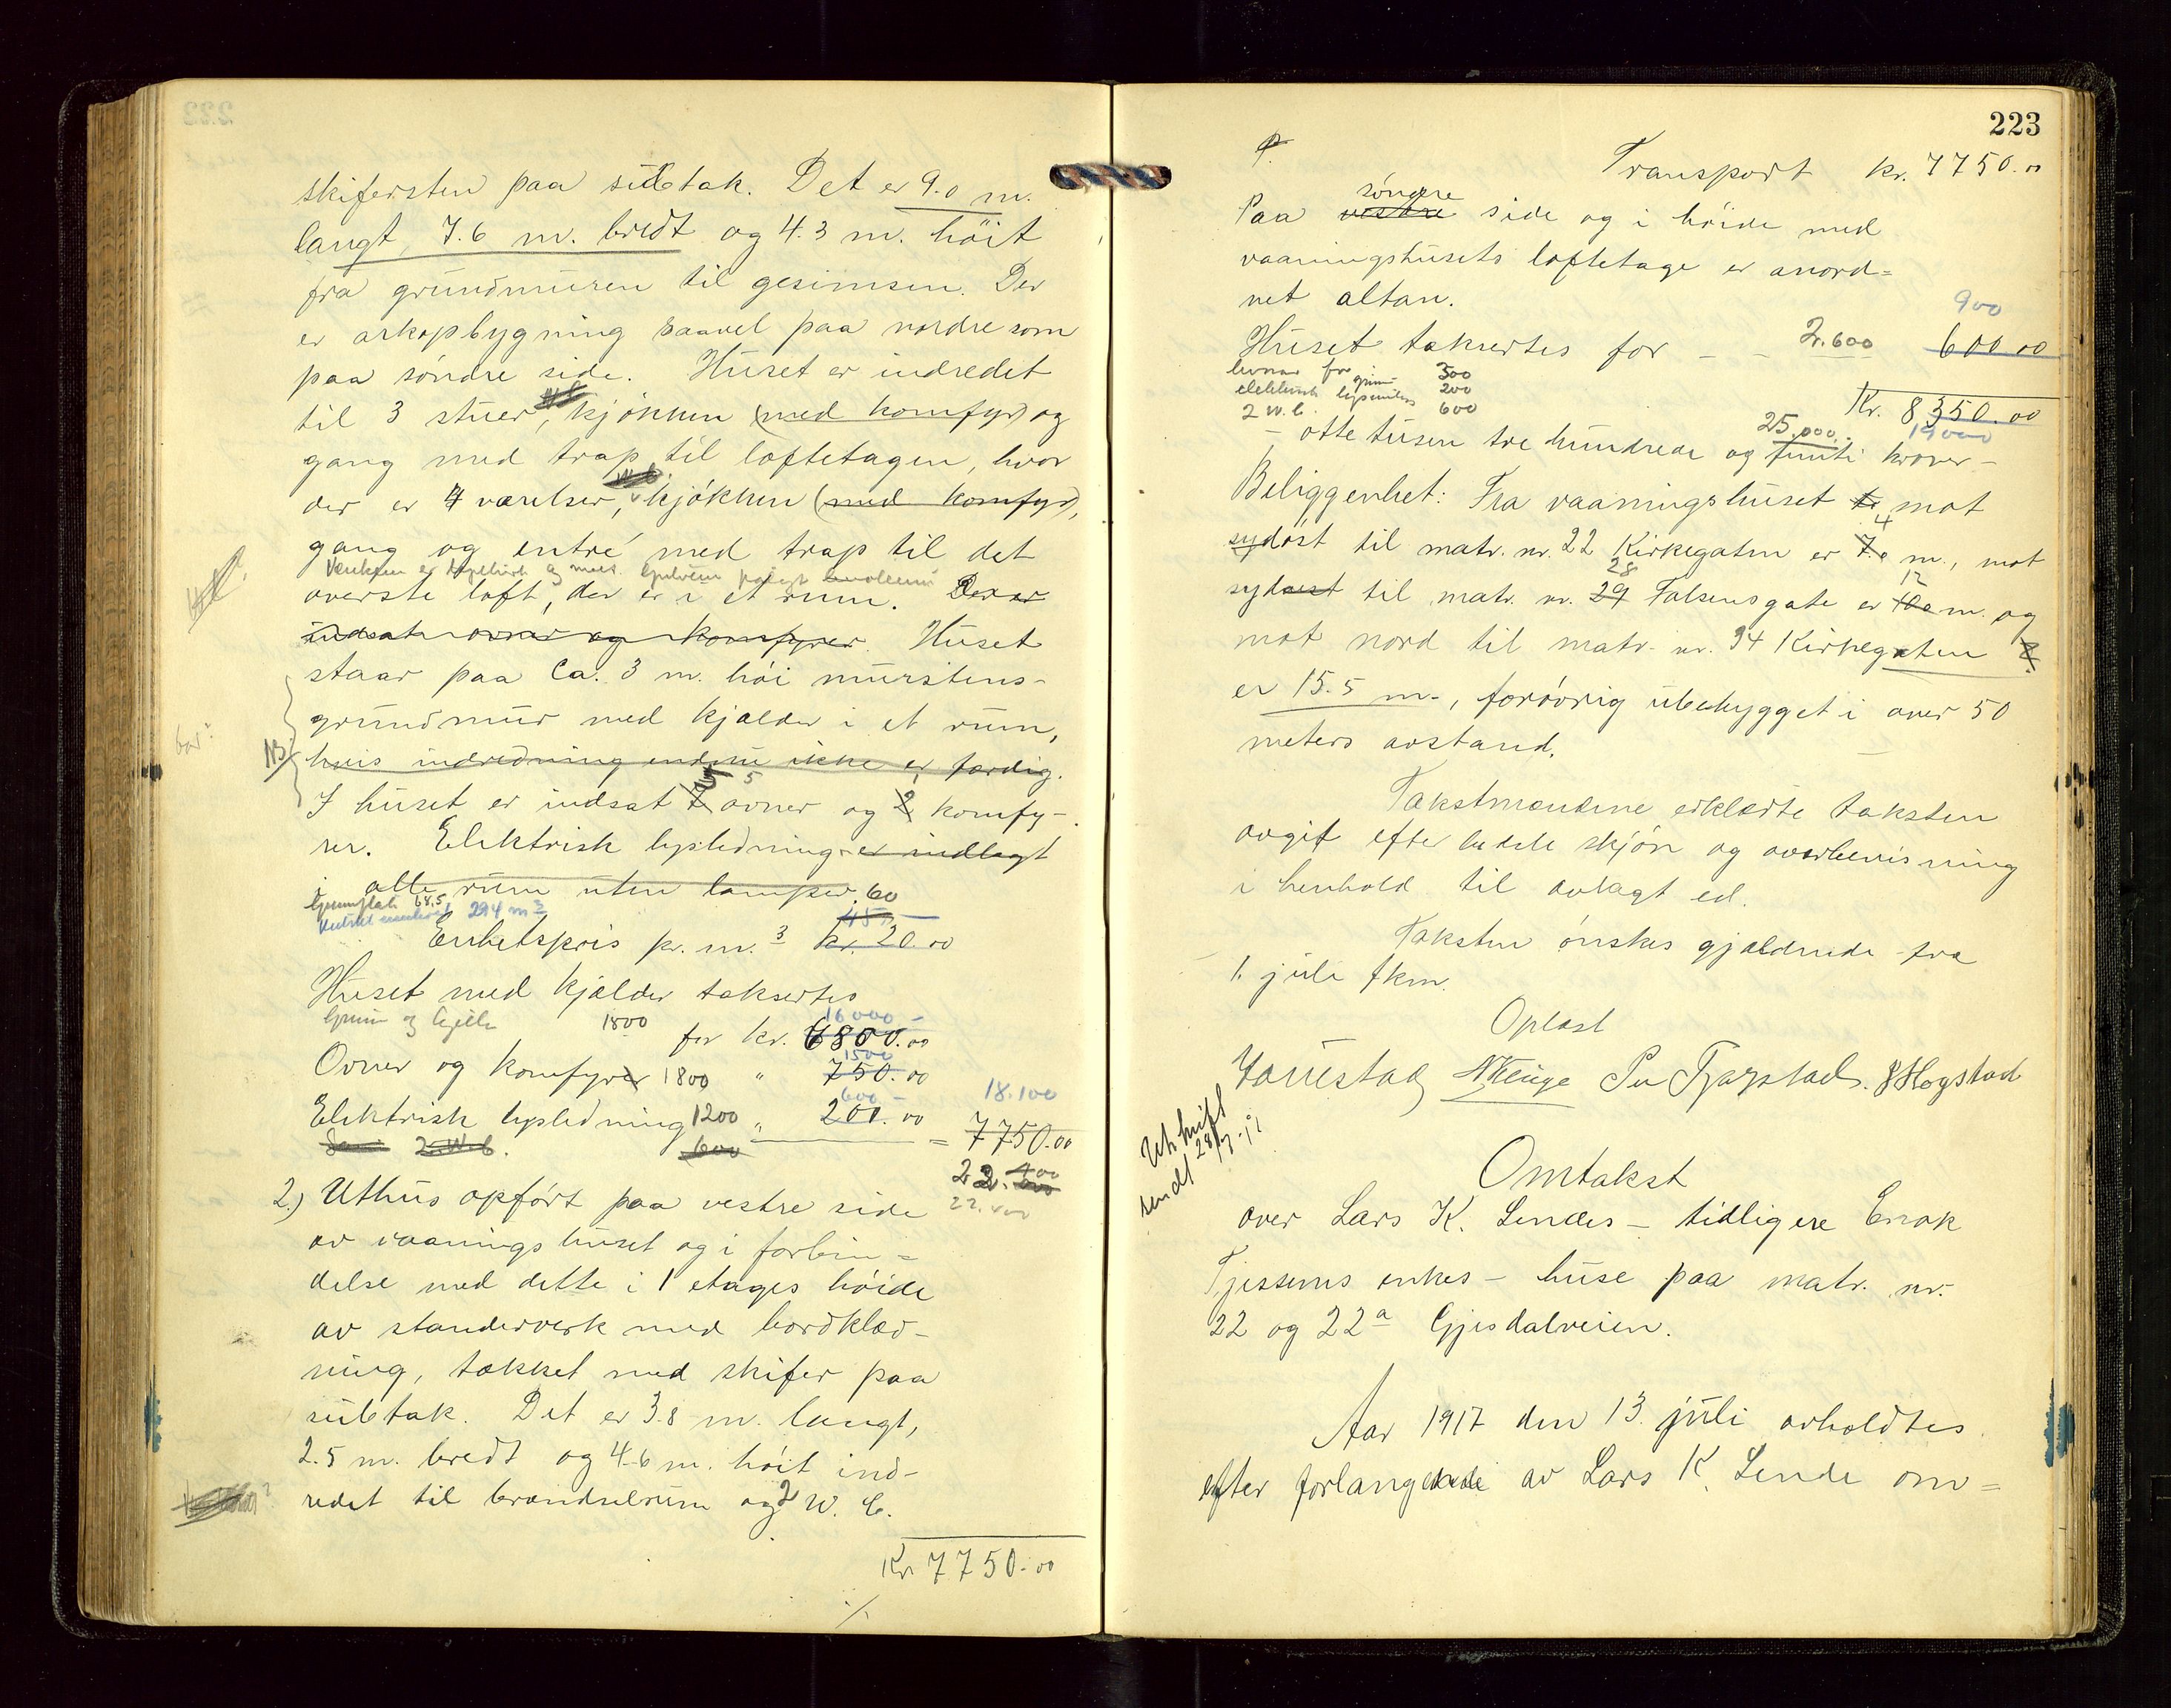 skifersten paa sutak. Det er 9.0 m.
langt, 7.6 m. bredt og 4.3 m. höit
fra grundmuren til gesimsen. Der
er arkopbygning saavel paa nordre som
paa söndre side. Huset er indredet
til 3 stuer, kjökken (med komfyr) og
gang med trap til loftetagen, hvor
der er 4 værelser, kjökken (med komfyr),
gang og entré med trap til det
överste loft, der er i et rum. Der er
indsat ovner og komfyrer. Huset
staar paa Ca. 3 m. höi murstens-
grundmur med kjælder i et rum,
hvis indredning endnu ikke er færdig.
I huset er indsat 7 5 5 ovner og 2 komfy-
rer. Elektrisk lysledning er indlagt
i alle rum uten lamper. 60
Grundflate 68,5
294 m3 45
Enhetspris pr. m.3 kr. 20.00
Huset med kjælder taksertes
16000 -
Grund og 1800 for kr. 6800.00
1500
Ovner og komfyrer 1800 " 750.00
600 - 18.100
Elektrisk lysledning 1200 " 200.00 = 7750.00
2 W C. 600
22.400
2.) Uthus opfört paa vestre side
av vaaningshuset og i forbin=
delse med dette i 1 etages höide
av standerverk med bordklæd-
ning, tækket med skifer paa
sutak. Det er 3.8 m. langt,
2.5 m. bredt og 4.6 m. höit ind-
redet til brændselrum og 2 W. C.
Kr 7750.00
./.
223
Transport kr. 7750.00
söndre
Paa vestre side og i höide med
vaaningshusets loftetage er anord=
net altan.
900
Huset taksertes for - - 2.600 600.00
300
elektrisk 200
2 W.C. 600
Kr. 8350.00
25.000 19000
- otte tusen tre hundrede og femti kroner -
Beliggenhet: Fra vaaningshuset mot
sydöst til matr. nr. 22 Kirkegaten er 7.0 4 m., mot
sydvest til matr. nr. 29 28 Falsensgate er 10.0 12 m. og
mot nord til matr. nr. 34 Kirkegaten
er 15.5 m., forövrig ubebygget i over 50
meters avstand.
Takstmændene erklærte taksten
avgit efter bedste skjön og overbevisning
i henhold til avlagt ed.
Taksten önskes gjældende fra
1. juli fkm.
Oplæst
Utskrift
sendt 28/7-17
Omtakst
over Lars K. Lendes - tidligere Enok
Tjessems enkes - huse paa matr. nr.
22 og 22a Gjesdalveien.
Aar 1917 den 13. juli avholdtes
efter forlangende av Lars K. Lende om=